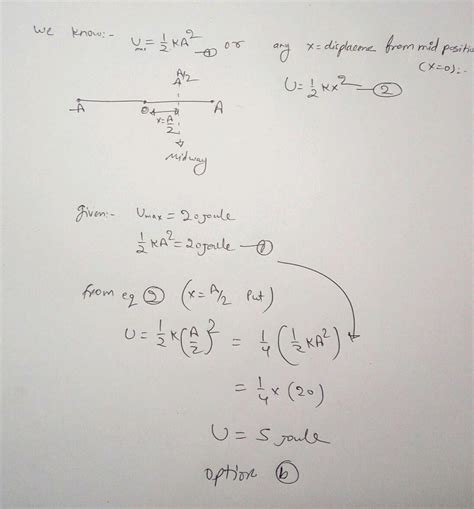 We know:- U_max = 1/2 KA² —① or any x = displaceme from mid positio
(x=0):-
U = 1/2 Kx² —②
A/2
-A 0 A
x = A/2
midway
Given:- Umax = 20 joule
1/2 KA² = 20 joule —①
from eq ② (x = A/2 Put)
U = 1/2 K(A/2)² = 1/4 (1/2 KA²)
= 1/4 × (20)
U = 5 joule
option ⓑ